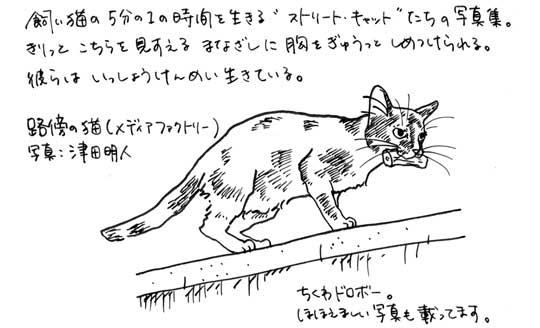 飼い猫の5分の1の時間を生きる"ストリート・キャット"たちの写真集。
きりっとこちらを見すえるまなざしに胸をぎゅうっとしめつけられる。
彼らはいっしょうけんめい生きている。
路傍の猫(メディアファクトリー)
写真：津田明人
ちくわドロボー。
ほほえましい写真も載ってます。